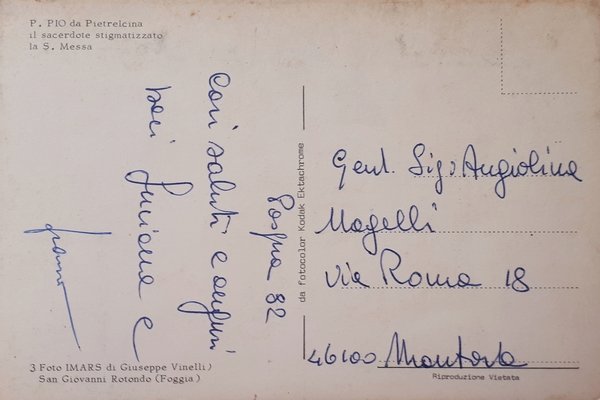 P. PIO da Pietrelcina
il sacerdote stigmatizzato
la S. Messa
Pasqua 82
Cari saluti e auguri
baci Luciana e
da fotocolor Kodak Ektachrome
Gent. Sig. Angiolina
Magelli
Via Roma 18
46100 Mantova
Riproduzione Vietata
3 Foto IMARS di Giuseppe Vinelli)
San Giovanni Rotondo (Foggia)